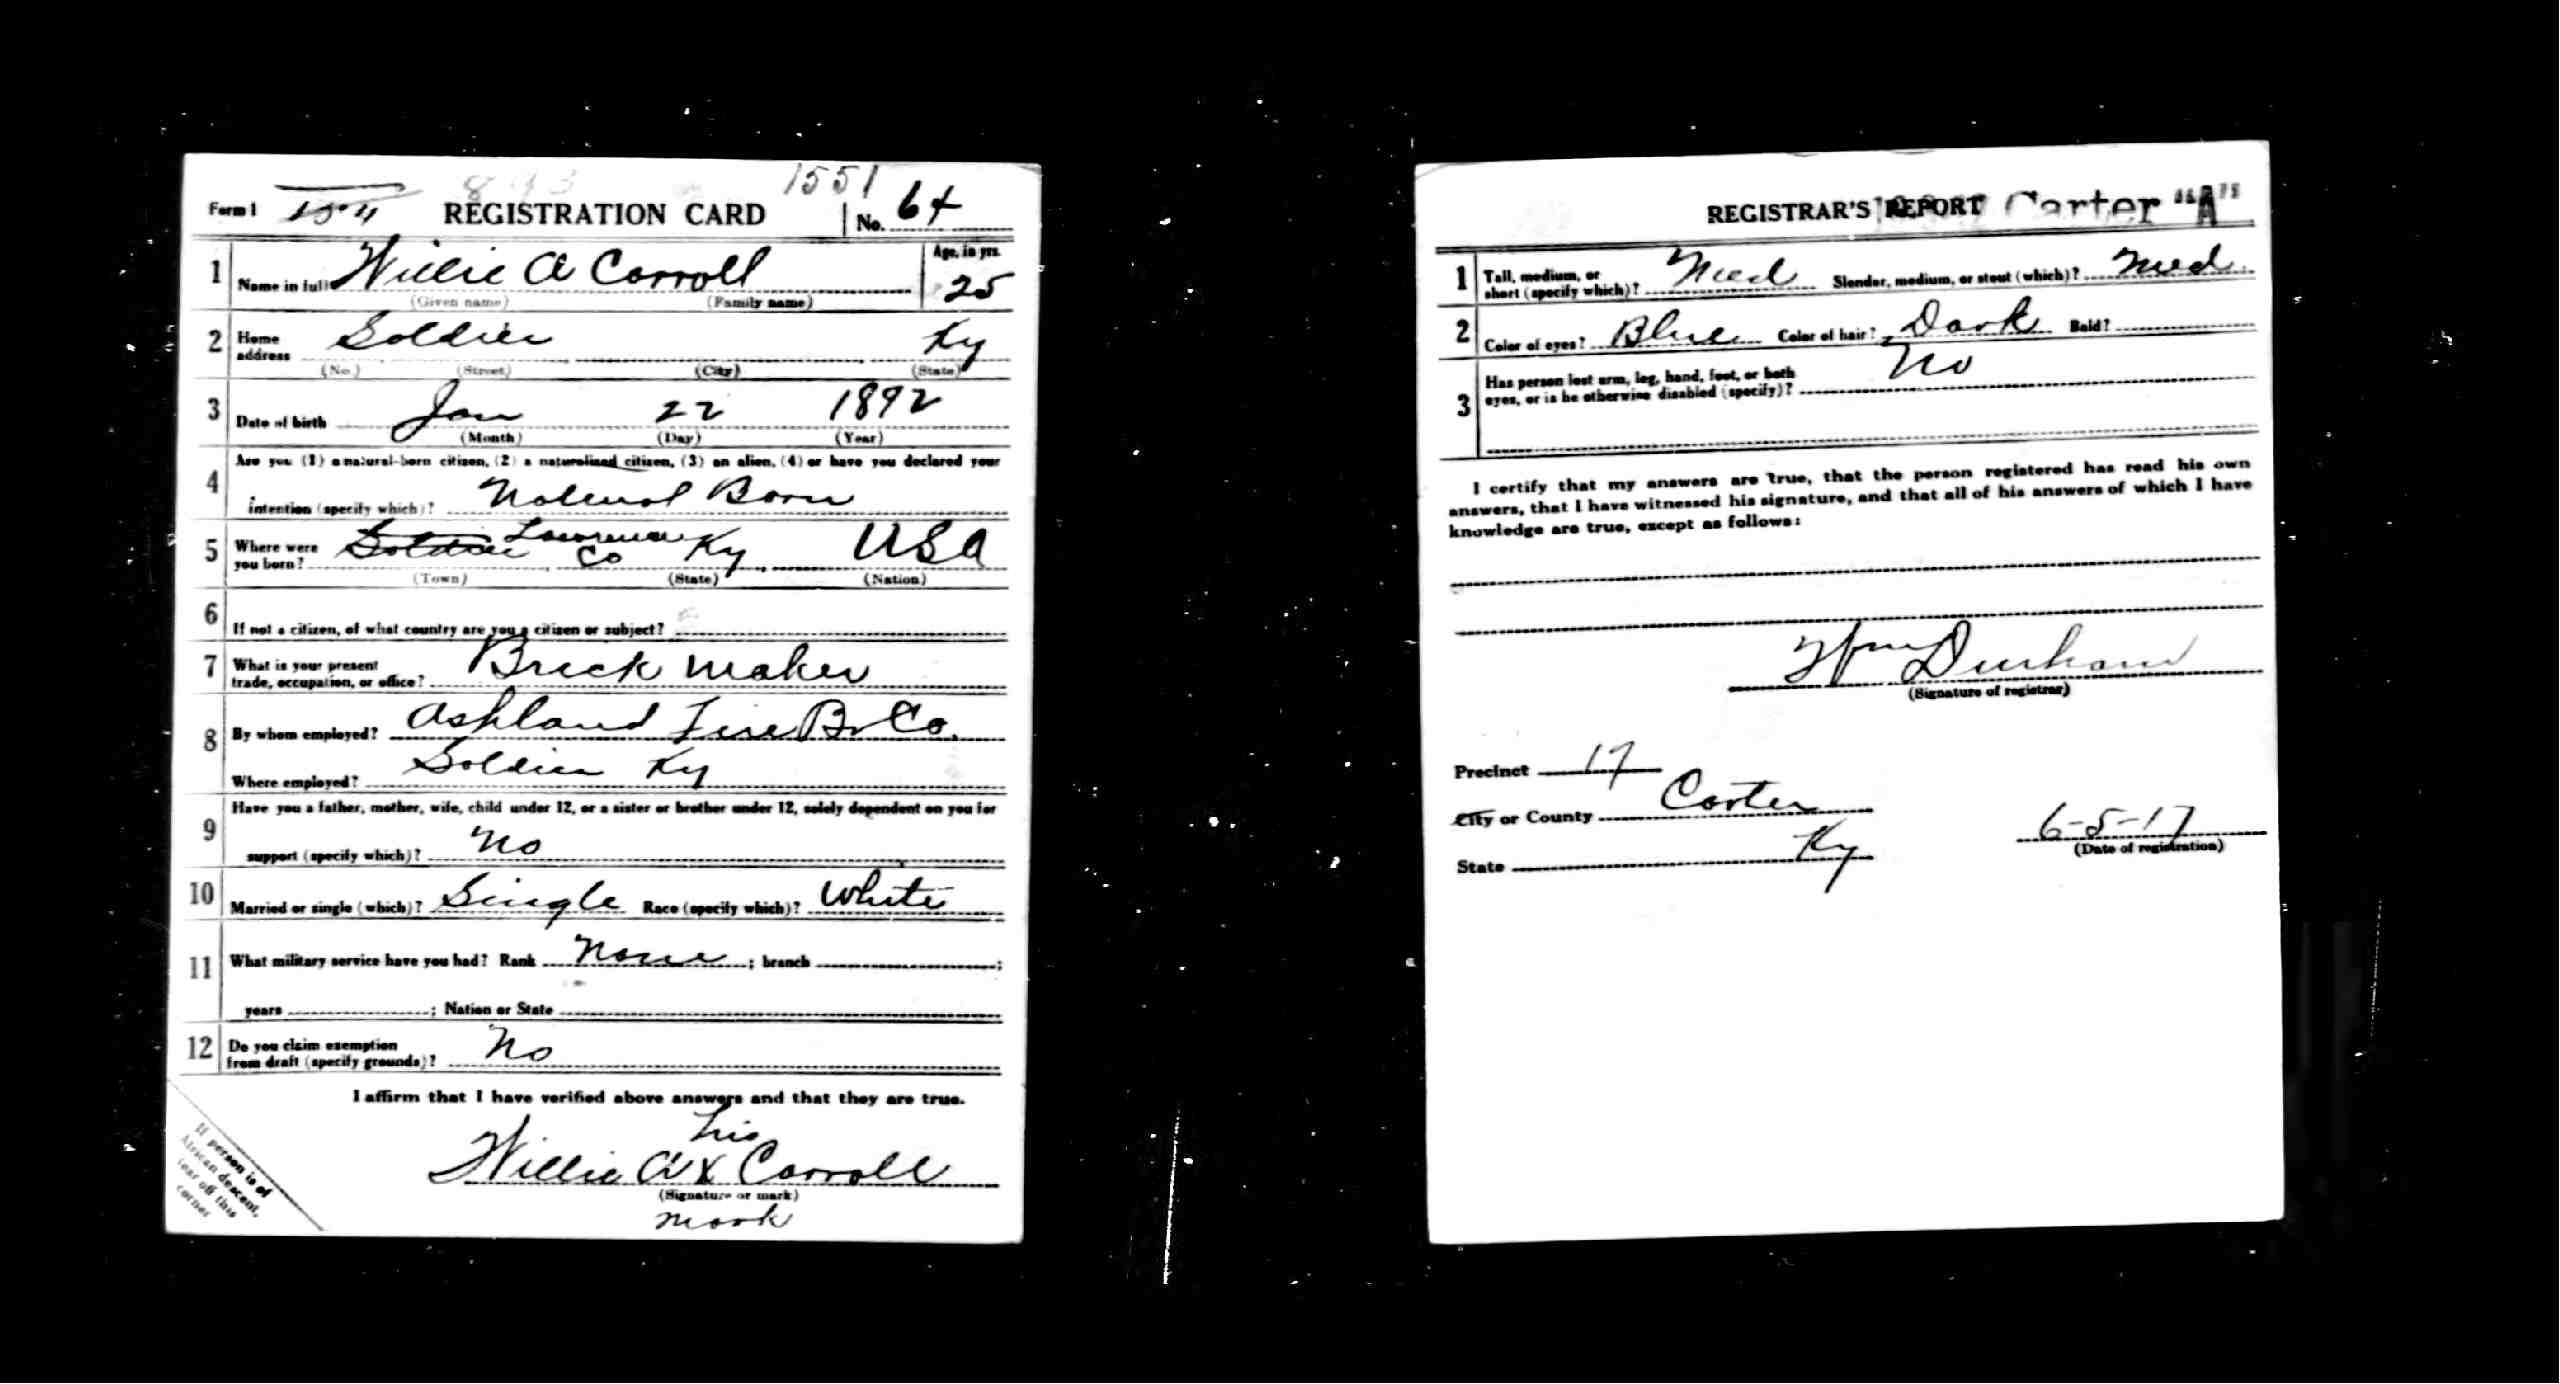 1551
893
Form 1 REGISTRATION CARD No. 64
1 Name in full Willie A Carroll Age, in yrs. 25
(Given name) (Family name)
2 Home address Soldier Ky
(No.) (Street) (City) (State)
3 Date of birth Jan 22 1892
(Month) (Day) (Year)
4 Are you (1) a natural-born citizen, (2) a naturalized citizen, (3) an alien, (4) or have you declared your
intention (specify which)? Natural Born
5 Where were you born? Soldier Lawrence Co Ky USA
(Town) (State) (Nation)
6 If not a citizen, of what country are you a citizen or subject?
7 What is your present trade, occupation, or office? Brick maker
8 By whom employed? Ashland Fire Br Co.
Where employed? Soldier Ky
9 Have you a father, mother, wife, child under 12, or a sister or brother under 12, solely dependent on you for
support (specify which)? No
10 Married or single (which)? Single Race (specify which)? White
11 What military service have you had? Rank None ; branch ;
years ; Nation or State
12 Do you claim exemption from draft (specify grounds)? No
I affirm that I have verified above answers and that they are true.
his
Willie A X Carroll
(Signature or mark)
mark
If person is of
African descent,
tear off this
corner
REGISTRAR'S REPORT Carter "A"
1 Tall, medium, or short (specify which)? Med Slender, medium, or stout (which)? Med
2 Color of eyes? Blue Color of hair? Dark Bald?
3 Has person lost arm, leg, hand, foot, or both eyes, or is he otherwise disabled (specify)? No
I certify that my answers are true, that the person registered has read his own
answers, that I have witnessed his signature, and that all of his answers of which I have
knowledge are true, except as follows:
Wm Durham
(Signature of registrar)
Precinct 17
City or County Carter
State Ky
6-5-17
(Date of registration)